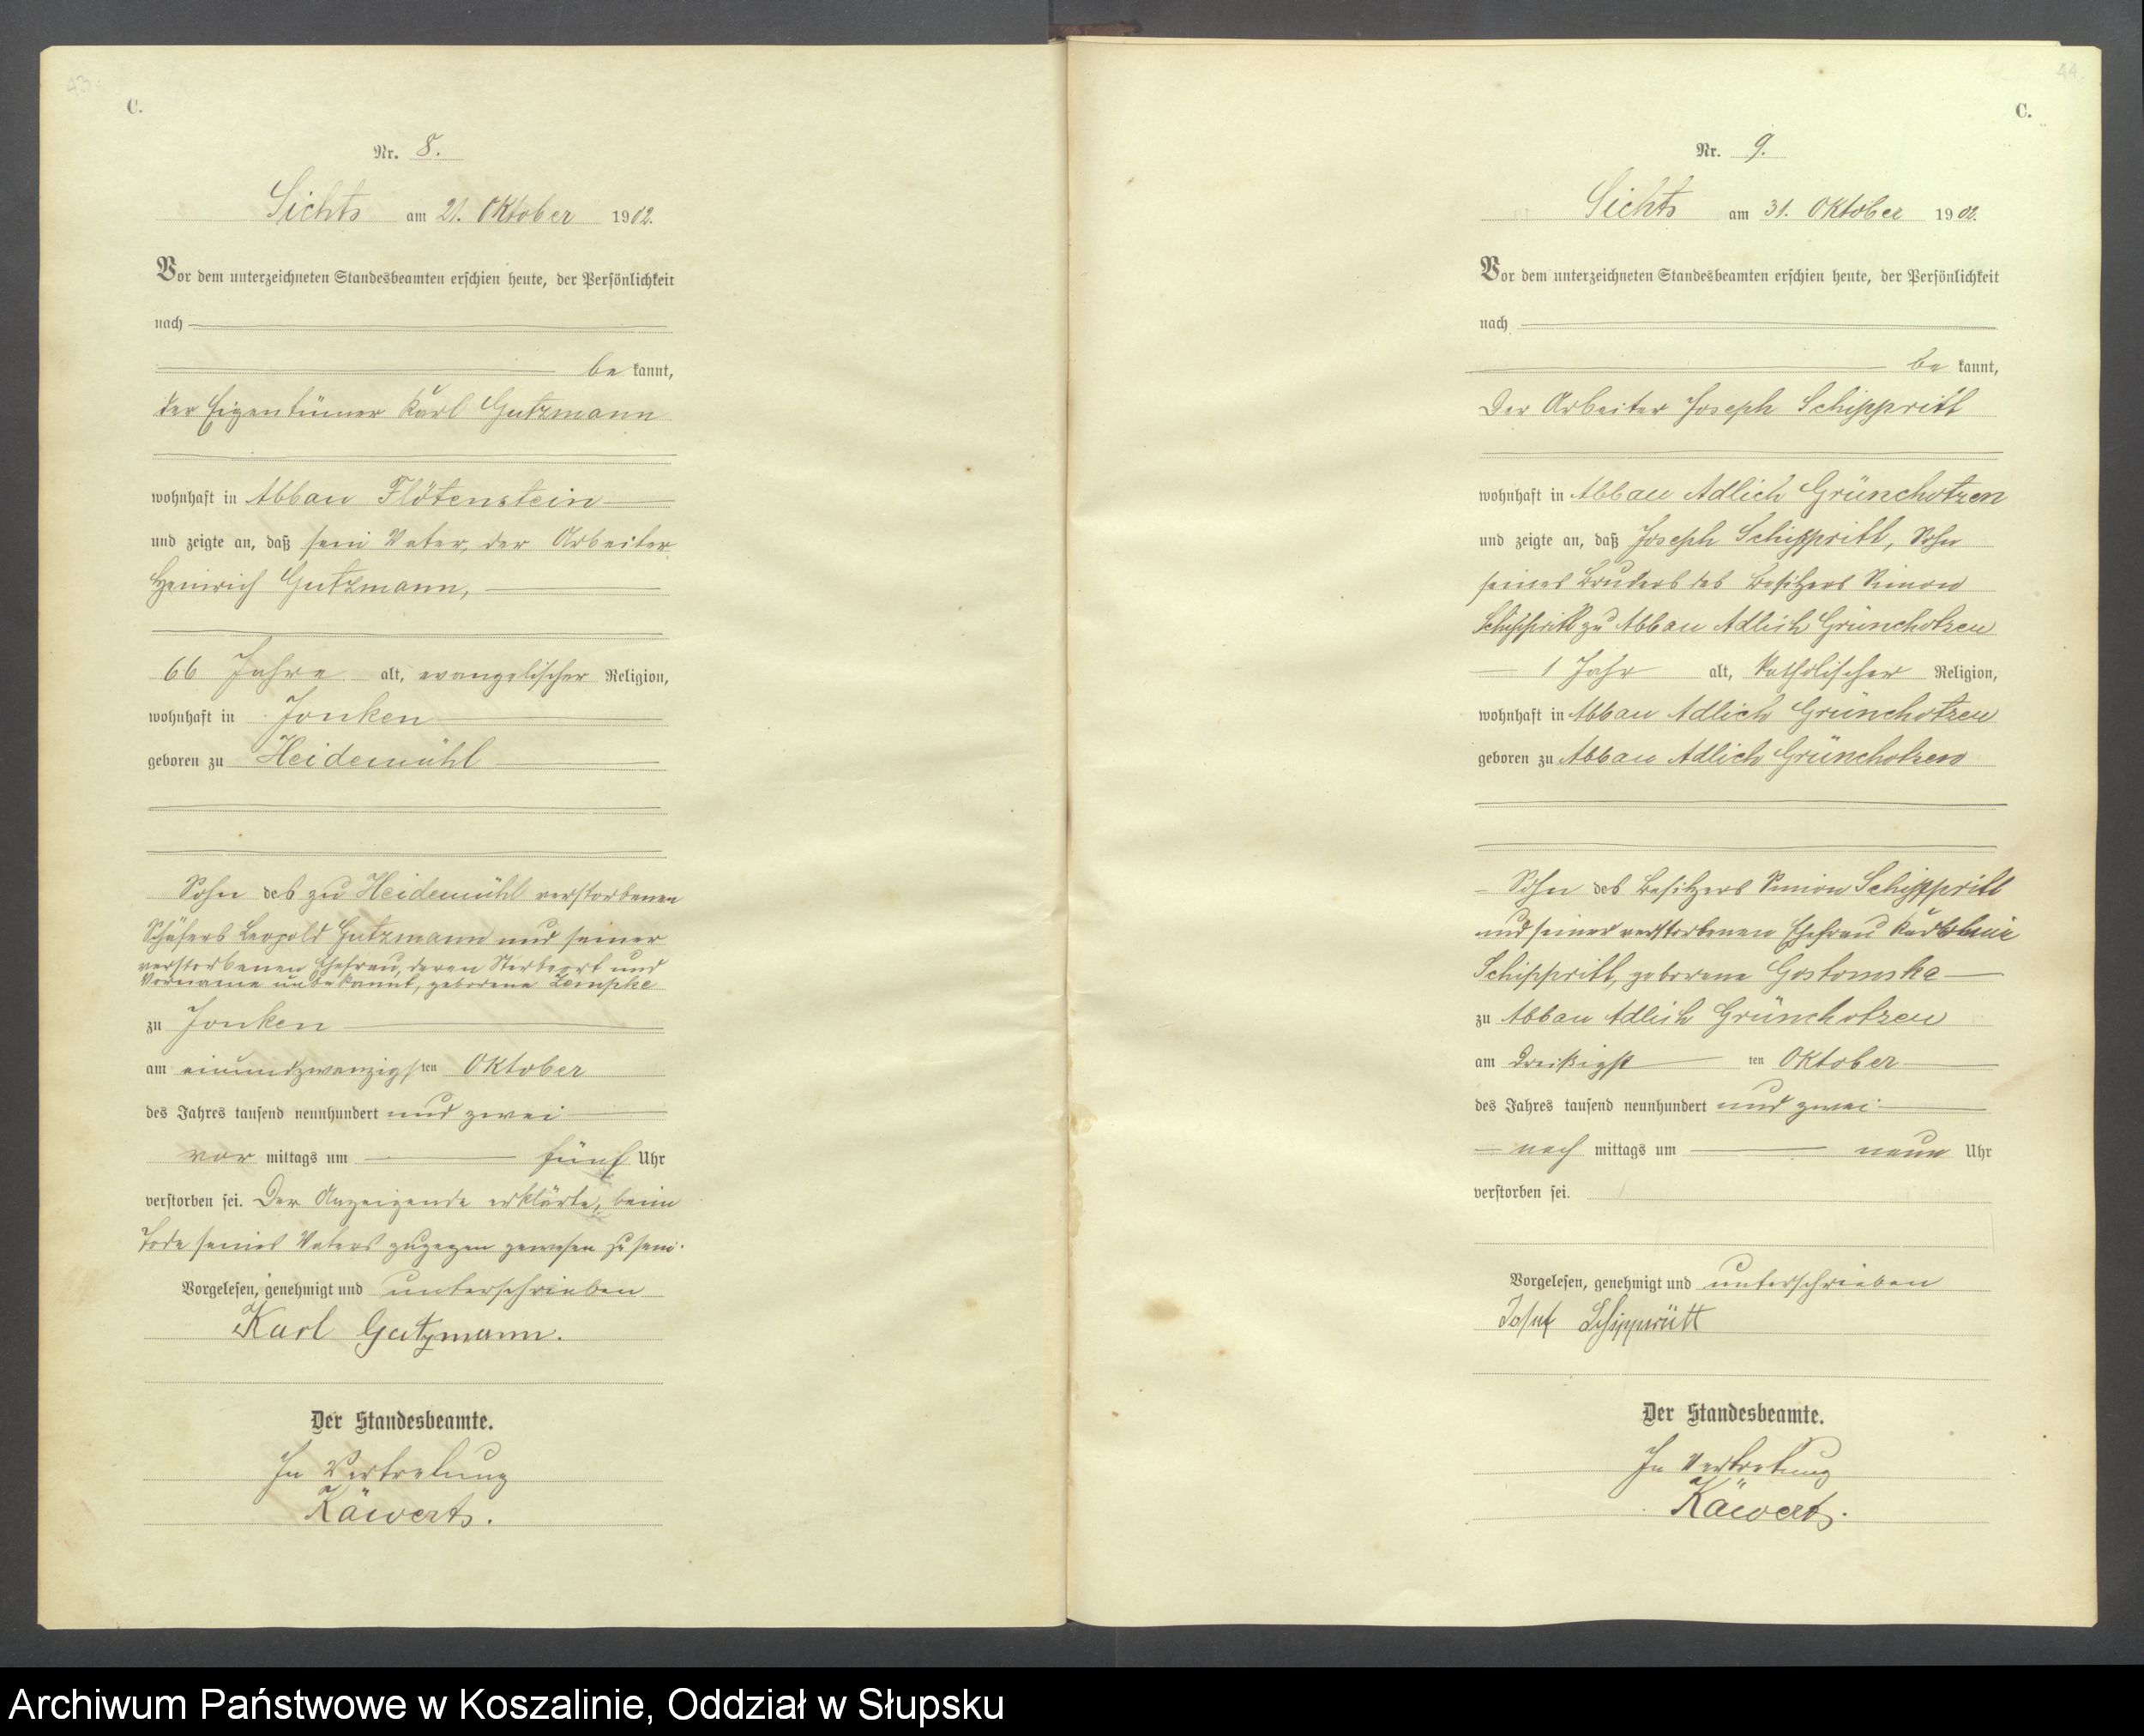 43.
C.
Nr. 8.
Sichts am 21. Oktober 1902.
Vor dem unterzeichneten Standesbeamten erschien heute, der Persönlichkeit
nach
be kannt,
der Eigentümer Karl Gutzmann
wohnhaft in Abbau Flötenstein
und zeigte an, daß sein Vater, der Arbeiter
Heinrich Gutzmann,
66 Jahre alt, evangelischer Religion,
wohnhaft in Jonken
geboren zu Heidemühl
Sohn des zu Heidemühl verstorbenen
Schäfers Leopold Gutzmann und seiner
verstorbenen Ehefrau, deren Sterbeort und
Vorname unbekannt, geborene Lempke
zu Jonken
am einundzwanzigsten Oktober
des Jahres tausend neunhundert und zwei
vor mittags um fünf Uhr
verstorben sei. Der Anzeigende erklärte, beim
Tode seines Vaters zugegen gewesen zu sein.
Vorgelesen, genehmigt und unterschrieben
Karl Gutzmann.
Der Standesbeamte.
In Vertretung
Käwert.
44.
C.
Nr. 9.
Sichts am 31. Oktober 1902.
Vor dem unterzeichneten Standesbeamten erschien heute, der Persönlichkeit
nach
be kannt,
Der Arbeiter Joseph Schippritt
wohnhaft in Abbau Adlich Grünchotzen
und zeigte an, daß Joseph Schippritt, Sohn
seines Bruders des Besitzers Simon
Schippritt zu Abbau Adlich Grünchotzen
1 Jahr alt, katholischer Religion,
wohnhaft in Abbau Adlich Grünchotzen
geboren zu Abbau Adlich Grünchotzen
Sohn des Besitzers Simon Schippritt
und seiner verstorbenen Ehefrau Karoline
Schippritt, geborene Gostomska
zu Abbau Adlich Grünchotzen
am dreißigst ten Oktober
des Jahres tausend neunhundert und zwei
nach mittags um neun Uhr
verstorben sei.
Vorgelesen, genehmigt und unterschrieben
Josef Schipprütt
Der Standesbeamte.
In Vertretung
Käwert.
Archiwum Państwowe w Koszalinie, Oddział w Słupsku